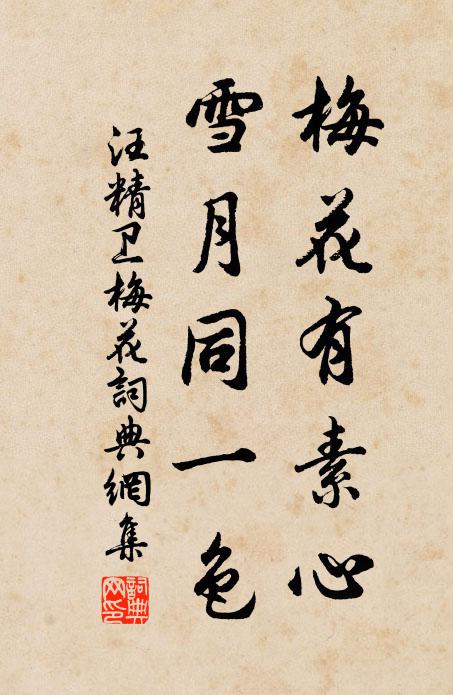 梅花有素心
雪月同一色
汪精卫梅花詞典網集
詞典網印